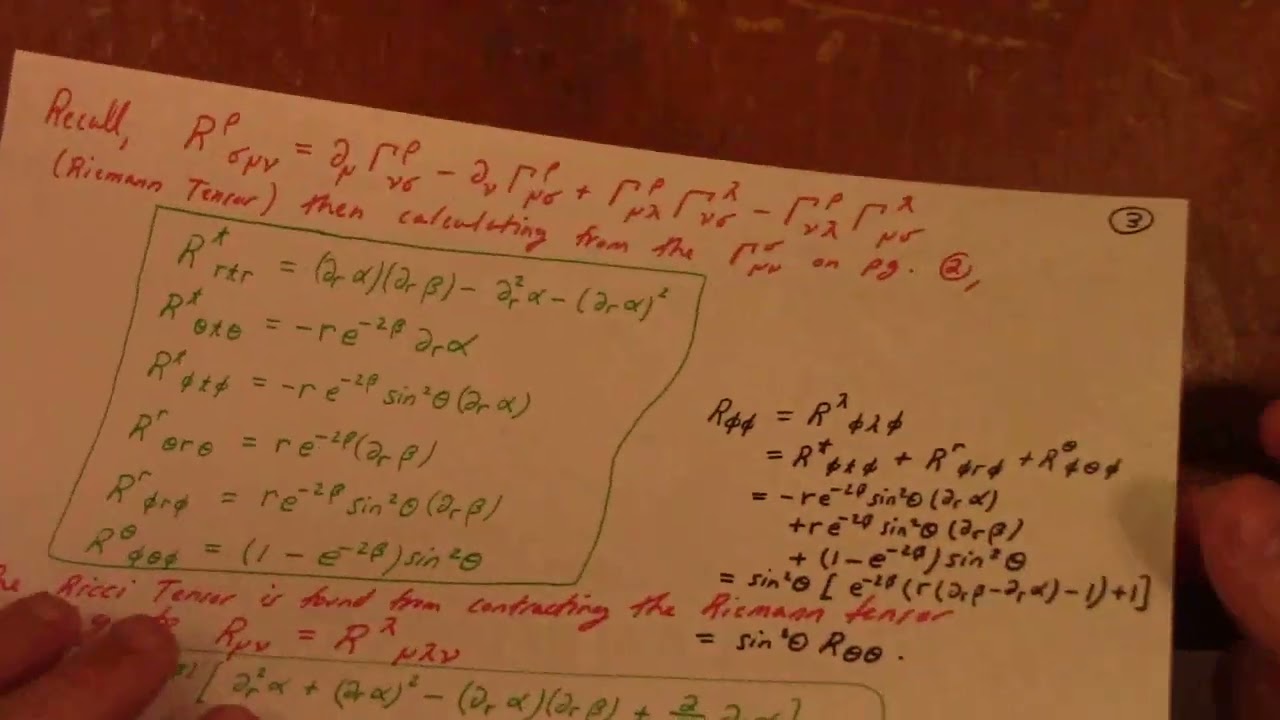 Recall, R^ρ_σμν = ∂_μ Γ^ρ_νσ − ∂_ν Γ^ρ_μσ + Γ^ρ_μλ Γ^λ_νσ − Γ^ρ_νλ Γ^λ_μσ
③
(Riemann Tensor) then calculating from the Γ^σ_μν on pg. ②,
R^t_rtr = (∂_r α)(∂_r β) − ∂_r^2 α − (∂_r α)^2
R^t_θtθ = −r e^−2β ∂_r α
R^t_ϕtϕ = −r e^−2β sin^2θ (∂_r α)
R^r_θrθ = r e^−2β (∂_r β)
R^r_ϕrϕ = r e^−2β sin^2θ (∂_r β)
R^θ_ϕθϕ = (1 − e^−2β) sin^2θ
R_ϕϕ = R^λ_ϕλϕ
= R^t_ϕtϕ + R^r_ϕrϕ + R^θ_ϕθϕ
= −r e^−2β sin^2θ (∂_r α)
+ r e^−2β sin^2θ (∂_r β)
+ (1 − e^−2β) sin^2θ
= sin^2θ [ e^−2β (r(∂_r β − ∂_r α) − 1) + 1 ]
= sin^2θ R_θθ .
Ricci Tensor is found from contracting the Riemann tensor
R_μν = R^λ_μλν
[ ∂_r^2 α + (∂_r α)^2 − (∂_r α)(∂_r β) + 2